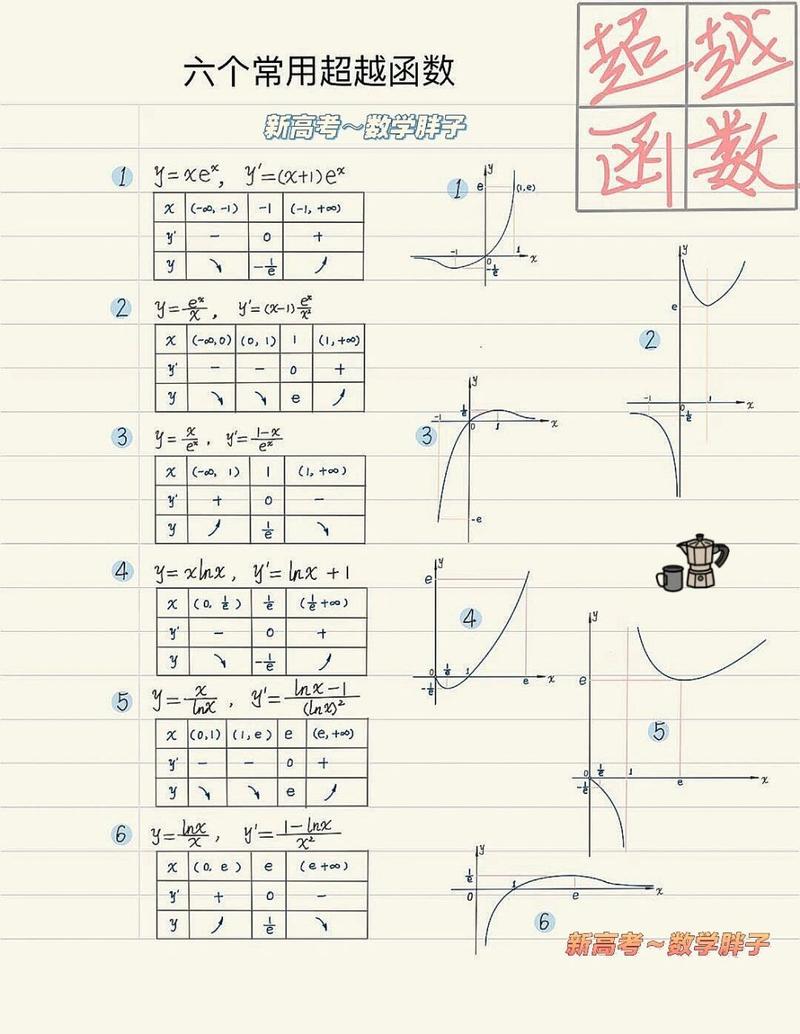 六个常用超越函数
超越
函数
新高考～数学胖子
1 y=xeˣ, y'=(x+1)eˣ
x (-∞,-1) -1 (-1,+∞)
y' - 0 +
y ↘ -1/e ↗
2 y=eˣ/x, y'=(x-1)eˣ/x²
x (-∞,0) (0,1) 1 (1,+∞)
y' - - 0 +
y ↘ ↘ e ↗
3 y=x/eˣ, y'=(1-x)/eˣ
x (-∞,1) 1 (1,+∞)
y' + 0 -
y ↗ 1/e ↘
4 y=xlnx, y'=lnx+1
x (0,1/e) 1/e (1/e+∞)
y' - 0 +
y ↘ -1/e ↗
5 y=x/lnx, y'=(lnx-1)/(lnx)²
x (0,1) (1,e) e (e,+∞)
y' - - 0 +
y ↘ ↘ e ↗
6 y=lnx/x, y'=(1-lnx)/x²
x (0,e) e (e+∞)
y' + 0 -
y ↗ 1/e ↘
1 y e (1,e) -1 0 1 x -1/e
2 y e -1 0 1 x -1/e
3 y 1/e -1 0 1 x -e
4 y e 0 1/e 1 e x -1/e
5 y e 0 1/e 1 e x -1/e
6 y 1/e 0 1 e x
新高考～数学胖子